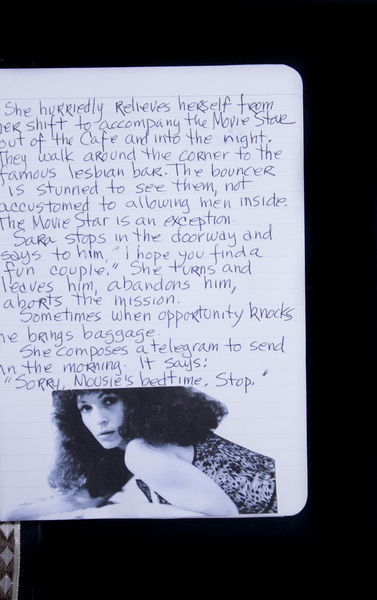 She hurriedly relieves herself from
her shift to accompany the Movie Star
out of the Cafe and into the night.
They walk around the corner to the
famous lesbian bar. The bouncer
is stunned to see them, not
accustomed to allowing men inside.
The Movie Star is an exception.
Sara stops in the doorway and
says to him, "I hope you find a
fun couple." She turns and
leaves him, abandons him,
aborts the mission.
Sometimes when opportunity knocks
he brings baggage.
She composes a telegram to send
in the morning. It says:
"Sorry, Mousie's bedtime. Stop."